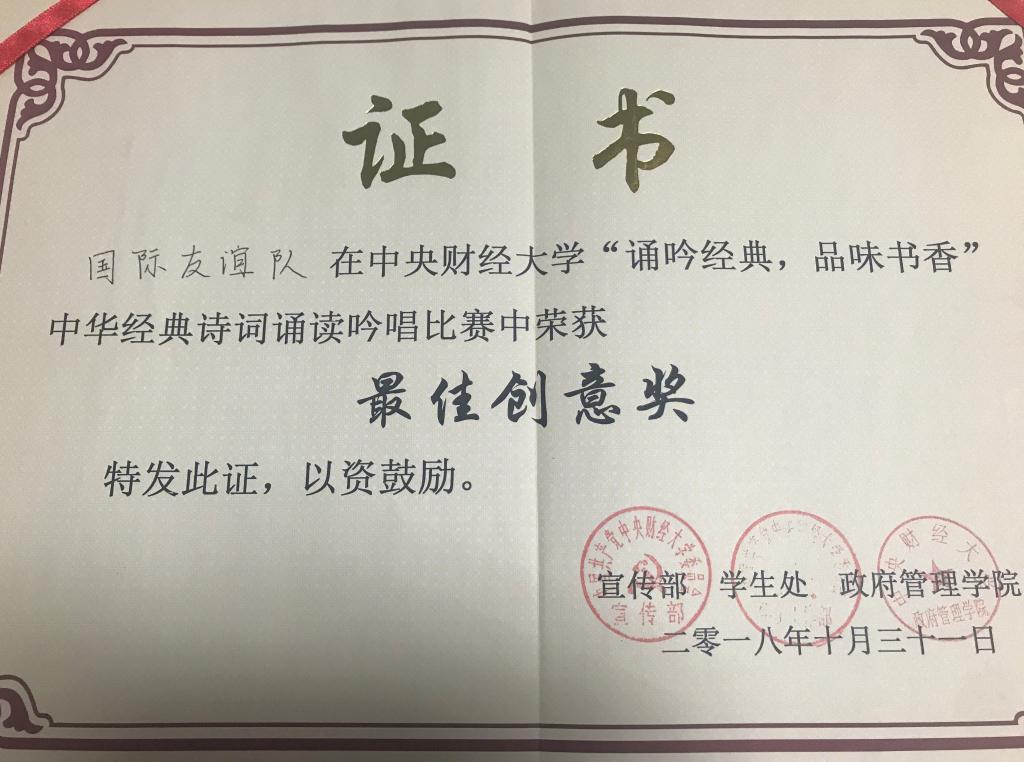 证书
国际友谊队 在中央财经大学“诵吟经典，品味书香”
中华经典诗词诵读吟唱比赛中荣获
最佳创意奖
特发此证，以资鼓励。
中国共产党中央财经大学委员会
宣传部
中央财经大学
政府管理学院
宣传部 学生处 政府管理学院
二零一八年十月三十一日